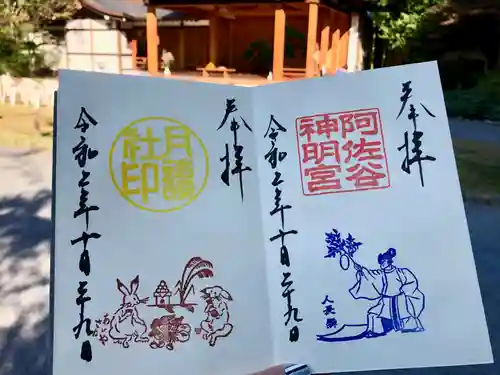 奉拝
阿佐谷
神明宮
令和元年十月二十九日
人長舞
奉拝
月讀
社印
令和元年十月二十九日